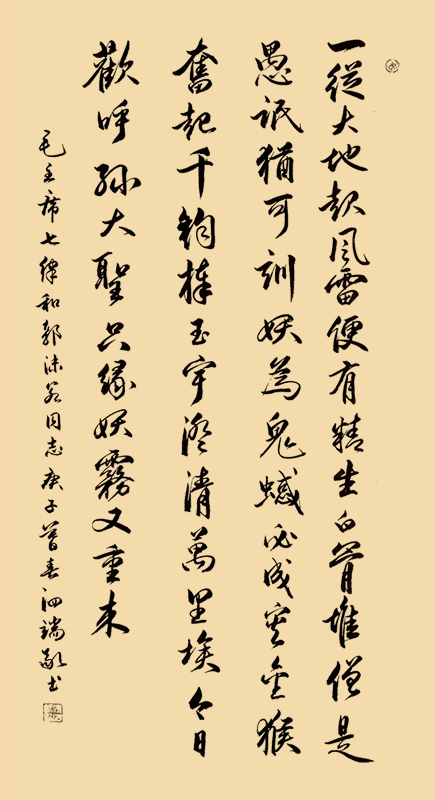 一從大地起風雷便有精生白骨堆僧是
愚氓猶可訓妖為鬼蜮必成災金猴
奮起千鈞棒玉宇澄清萬里埃今日
歡呼孫大聖只緣妖霧又重來
毛主席七律和郭沫若同志庚子暮春泗端敬书